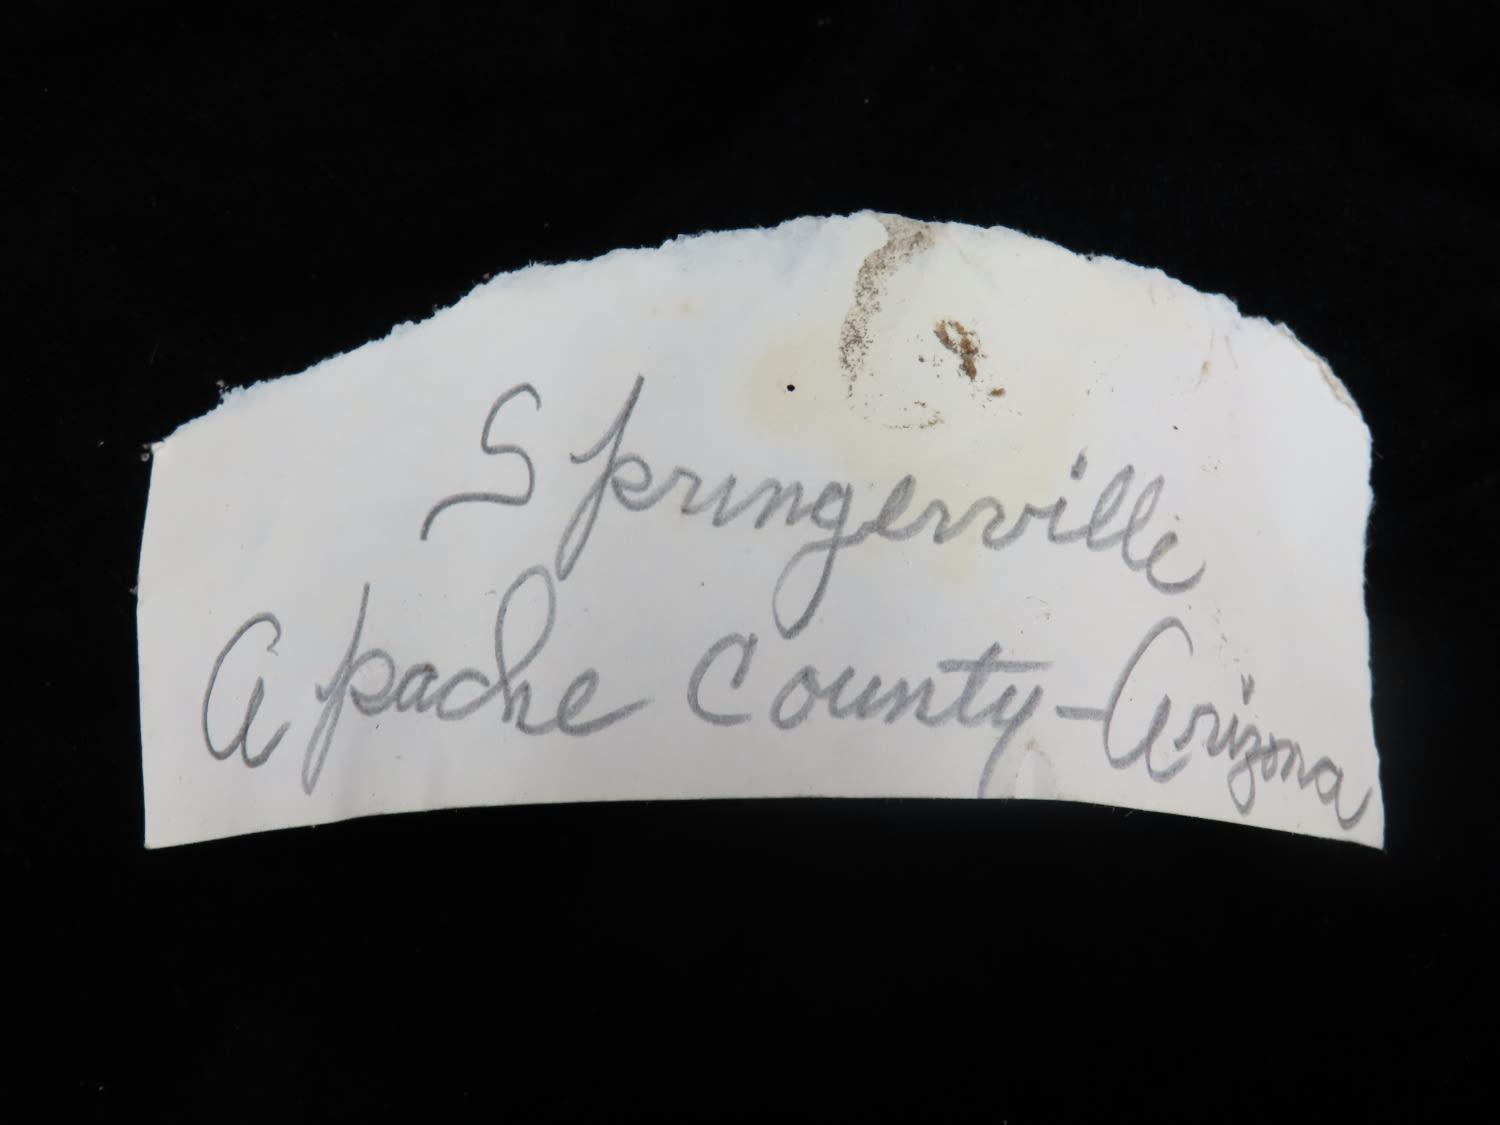 Springerville
Apache County - Arizona